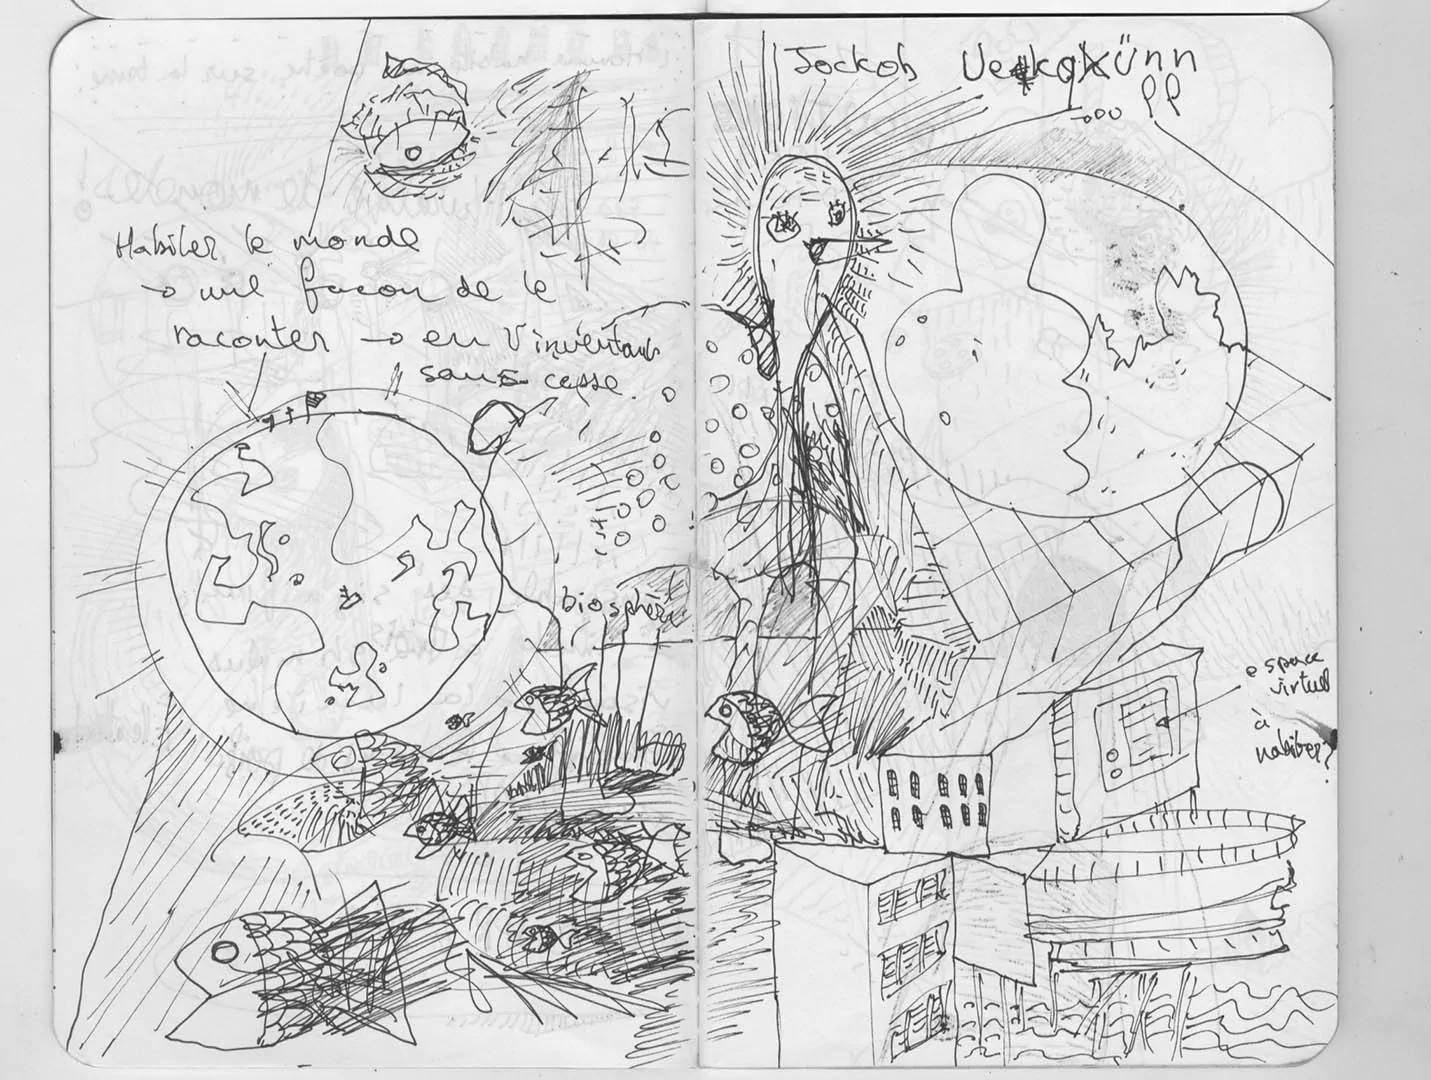 Habiter le monde
→ mil facon de le
raconter → en l'inventant
sans cesse
biosphère
Jockob
espace
virtuel
à
habiter?